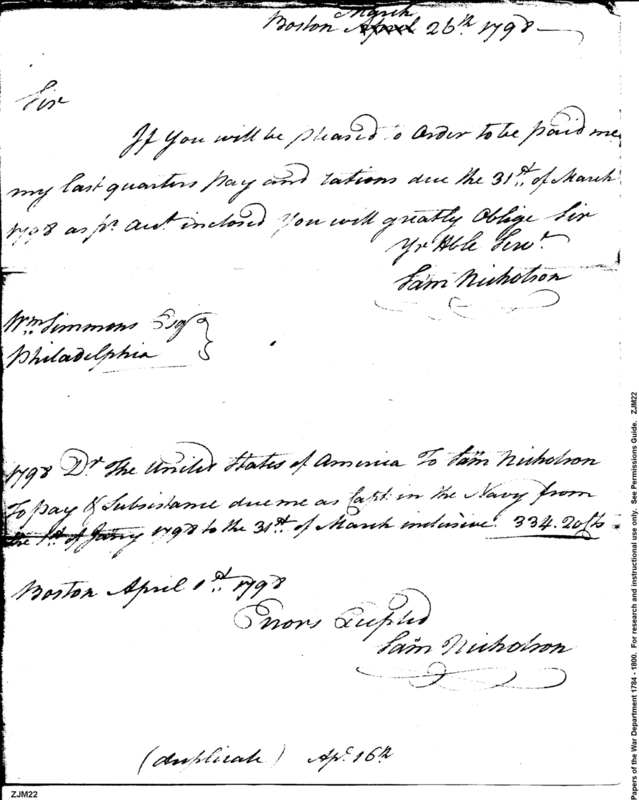 March
Boston April 26th 1798
Sir
If You will be pleased to Order to be paid me
my last quarters pay and rations due the 31st. of March
1798 as pr. Acct. inclosed You will greatly Oblige Sir
Yr Hble Servt.
Sam Nicholson
Wm. Simmons Esqr
Philadelphia
1798 Dr. The United States of America To Sam Nicholson
To pay & Subsistance due me as Capt. in the Navy from
the 1st of Janry 1798 to the 31st. of March inclusive 334.20
Boston April 1st. 1798
Errors Excepted
Sam Nicholson
(duplicate) Apl. 16th
ZJM22
Papers of the War Department 1784 - 1800. For research and instructional use only. See Permissions Guide. ZJM22